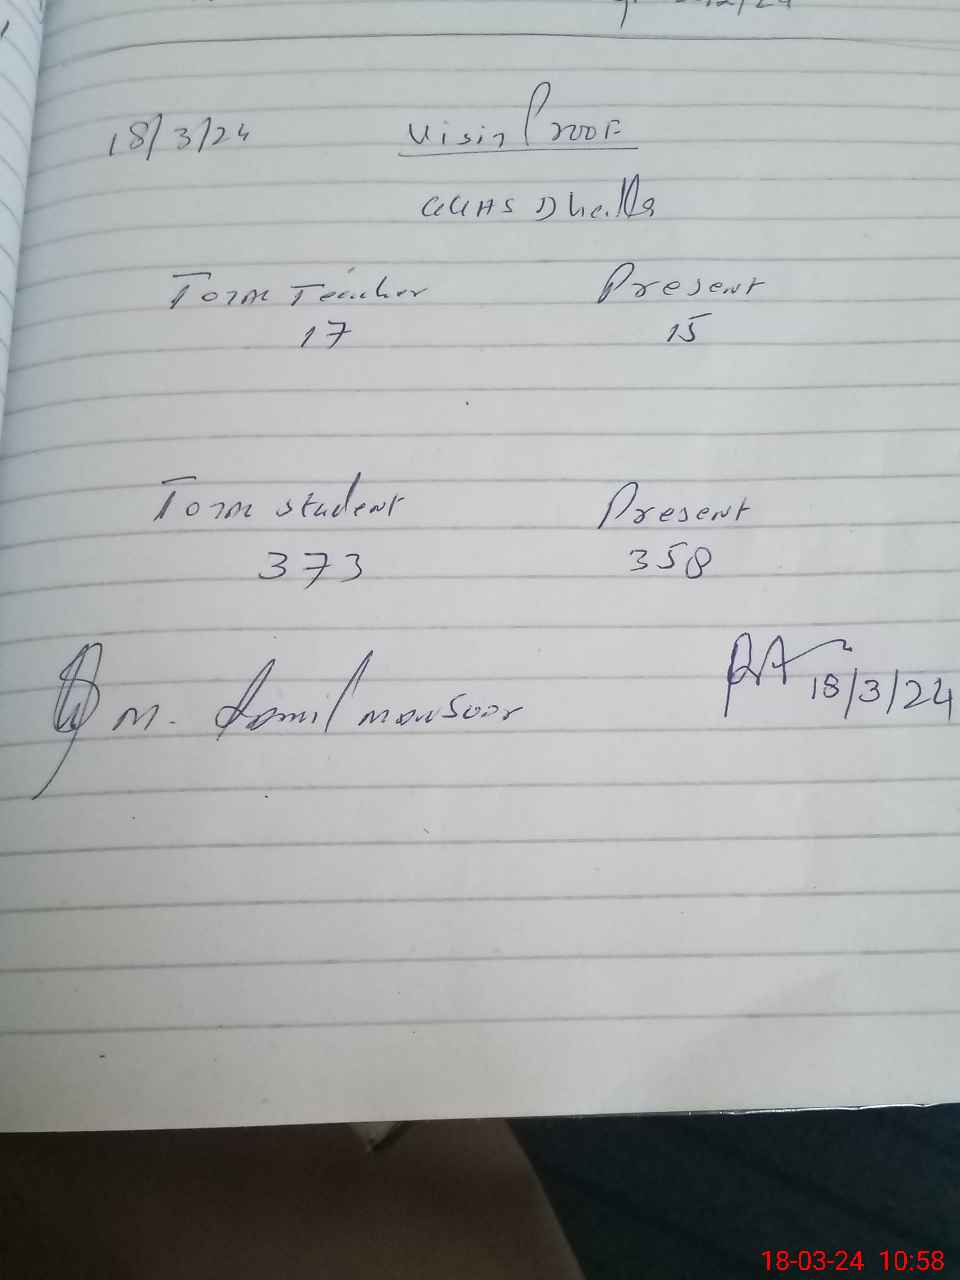 18/3/24 Visin Proof
GGHS Dhalla
Torm Teacher Present
17 15
Torm student Present
373 358
M. Jamil mansoor
RA 18/3/24
18-03-24 10:58